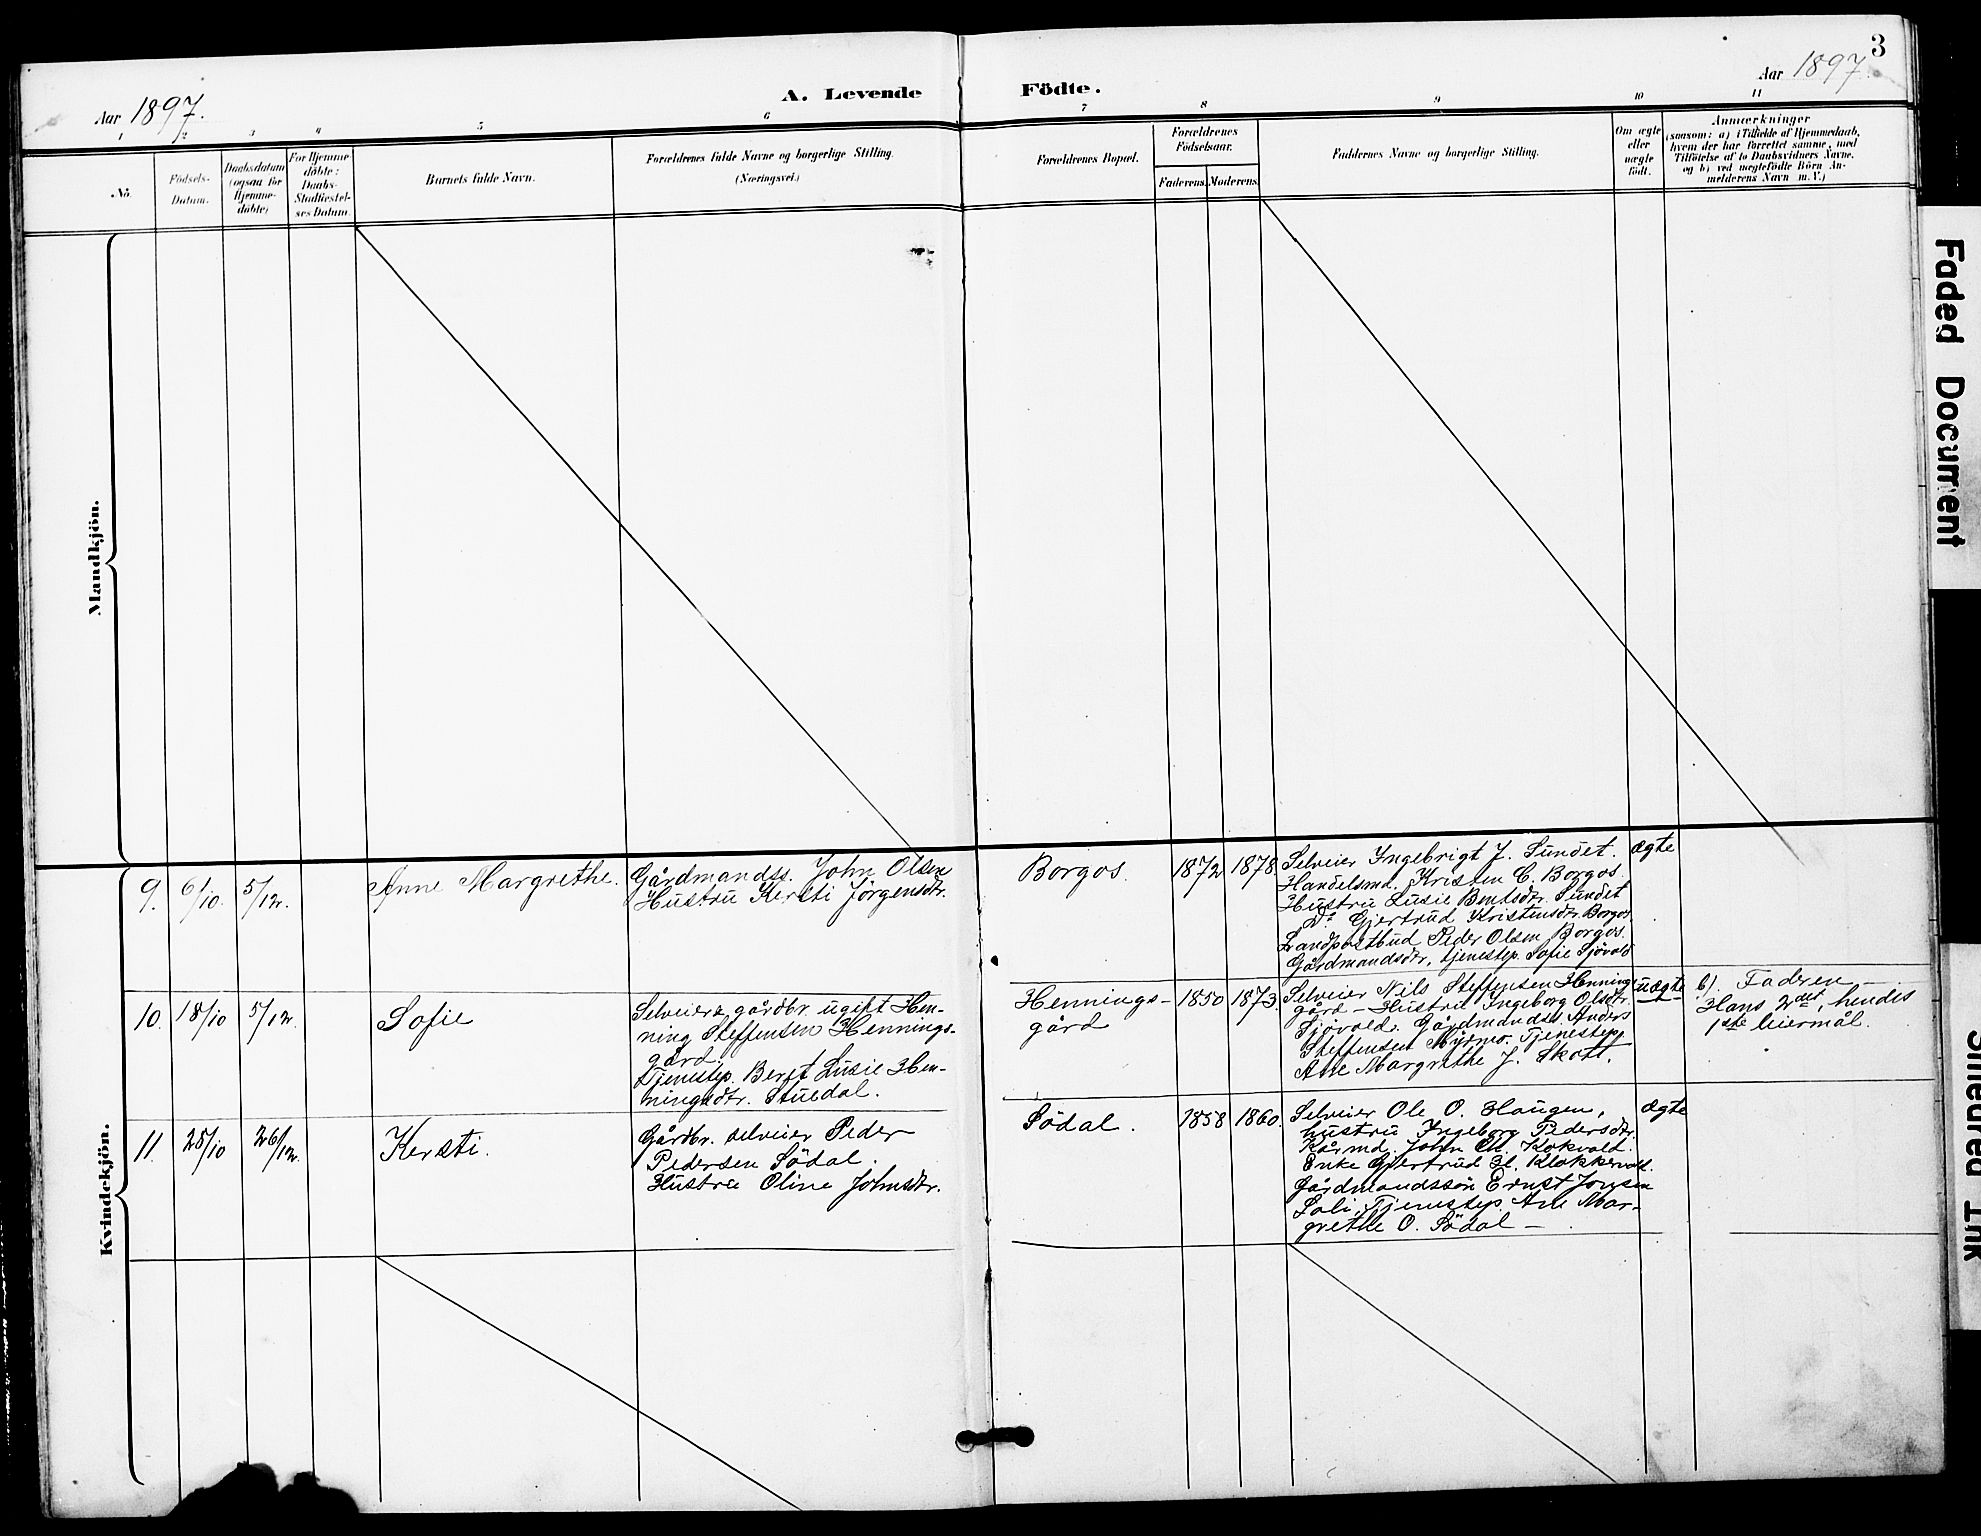 3
Aar 1897.
A. Levende
Födte.
Aar 1897.
1 2 3 4 5 6 7 8 9 10 11
No.
Födsels-
Datum.
Daabsdatum
(ogsaa for
Hjemme-
döbte)
For Hjemme
döbte:
Daabs-
Stadfæstel-
ses Datum.
Barnets fulde Navn.
Forældrenes fulde Navne og borgerlige Stilling.
(Næringsvei.)
Forældrenes Bopæl.
Forældrenes
Födselsaar.
Faderens.
Moderens.
Faddernes Navne og borgerlige Stilling.
Om ægte
eller
uægte
födt.
Anmærkninger
(saasom: a) i Tilfælde af Hjemmedaab,
hvem der har forrettet samme, med
Tilföielse af to Daabsvidners Navne.
og b) ved uægtefödte Börn An-
melderens Navn m. V.)
Mandkjön.
Kvindekjön.
9. 6/10. 5/12. Anne Margrethe.
Gårdmandss. John Olsen
Hustru Kersti Jörgensdtr.
Borgos. 1872 1878
Selveier Ingebrigt J. Sundet.
Handelsmd. Kristen C. Borgos.
Hustru Lusie Bentsdtr. Sundet
Do Gjertrud Kristensdtr. Borgos.
Landpostbud Peder Olsen Borgos.
Gårdmandsdtr, tjenestep. Sofie Sjövold
ægte
10. 18/10 5/12. Sofie
Selveier & gårdbr. ugift Hen-
ning Steffensen Hennings-
gård.
Tjenestep. Beret Lusie Hen-
ningsdtr. Stuedal.
Hennings-
gård
1850 1873.
Selveier Nils Steffensen Hennings
gård – Hustru Ingeborg Olsdtr.
Sjövold. Gårdmandss. Anders
Steffensen Myrmo. Tjenestep.
Ane Margrethe J. Skott.
uægte
b). Fadren –
Hans 2det, hendes
1ste leiermål.
11. 25/10 26/12. Kersti.
Gårdbr. selveier Peder
Pedersen Södal.
Hustru Oline Johnsdtr.
Södal. 1858 1860.
Selveier Ole O. Haugen,
hustru Ingeborg Pedersdtr.
Kårmd. John Ol. Kokvold.
Enke Gjertrud H. Klokkervold.
Gårdmandssön Ernst Jonsen
Soli, Tjenestep. Ane Mar-
grethe O. Södal –
ægte
Faded Document
Smeared Ink